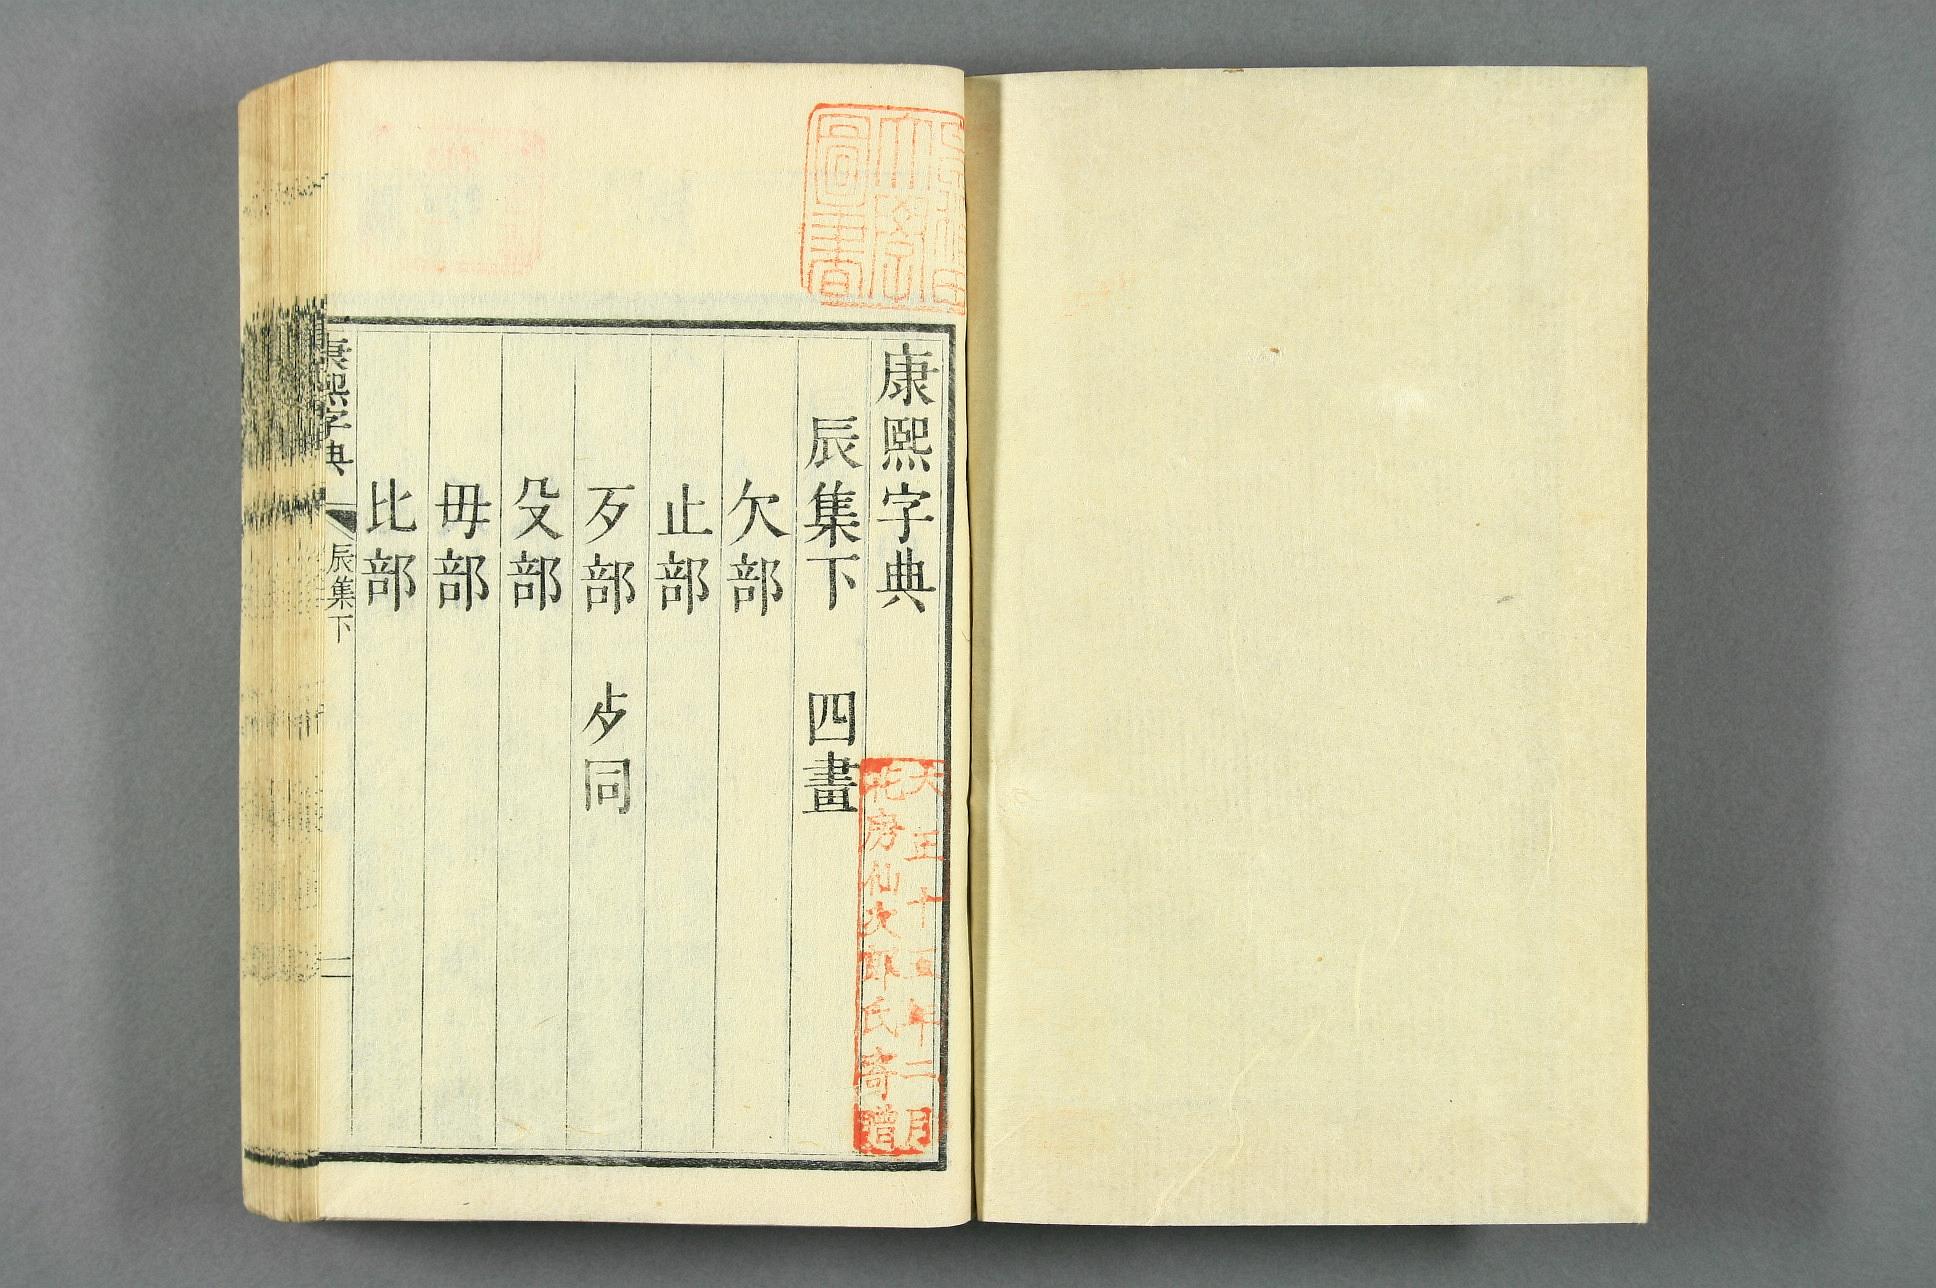 康熙字典
辰集下 四畫
欠部
止部
歹部 歺同
殳部
毋部
比部
康熙字典 辰集下 一
大學
圖書
大正十五年二月
花房仙次郎氏寄贈